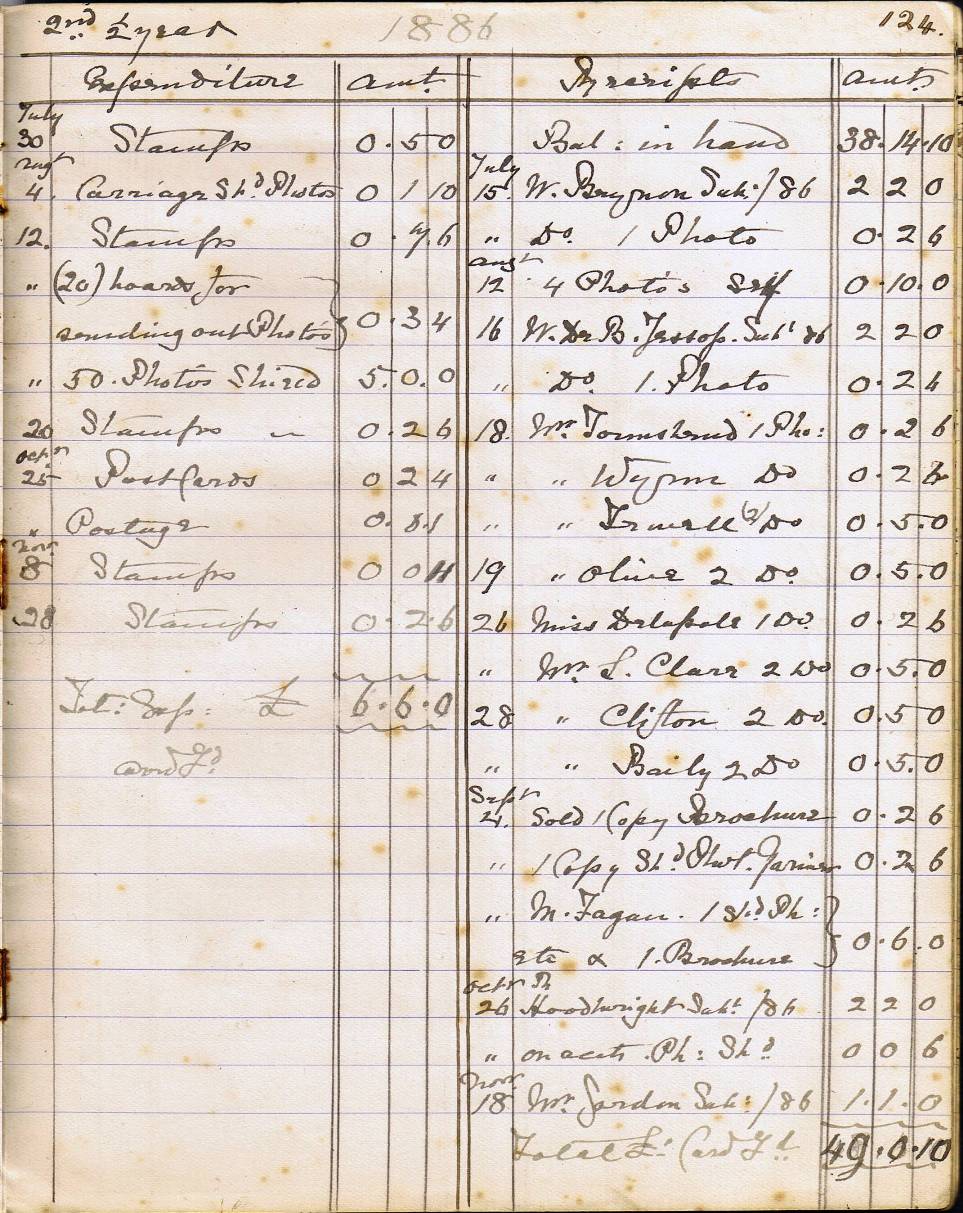 2nd ½ year 1886 124.
Expenditure amt.
July
30 Stamps 0.5 0
Augt
4. Carriage Shd Photos 0 1 10
12. Stamps 0.7.6
" (20) boards for
sending out Photos } 0.3 4
" 50. Photos Shired 5.0.0
20 Stamps " 0.2 6
Octr
25 Post Cards 0 2 4
" Postage 0.
Novr
8 Stamps 0 0 11
28 Stamps 0.2.6
Tot: Exp: £ 6.6.0
Card Fd
Receipts amt.
Bal: in hand 38.14.10
July
15. W. Subt: /86 2 2 0
" Do. 1 Photo 0.2 6
Augt
12 4 Photo's Self 0.10.0
16 W. Dr B. Jessop. Subt 86 2 2 0
" Do. 1. Photo 0.2 6
18. Mr. Townshend 1 Pho: 0.2 6
" " Wynn Do 0.2 6
" " (2) Do 0.5.0
19 " Olive 2 Do. 0.5.0
26 Miss Delapole 1 Do. 0.2 6
" Mr. L. Clare 2 Do 0.5.0
28 " Clifton 2 Do. 0.5 0
" " Baily 2 Do 0.5.0
Sept
21. Sold 1 Copy Brochure 0.2 6
" 1 Copy Shd Phot. 0.2 6
" M. Fagan. 1 Sd Ph:
etc & 1. Brochure } 0.6.0
Octr
26 Hoodwright Subt. /86 2 2 0
" on acct. Ph: Shd 0 0 6
Novr
18 Mr. Gordon Sub: /86 1.1.0
Total £: Card Fd. 49.0.10